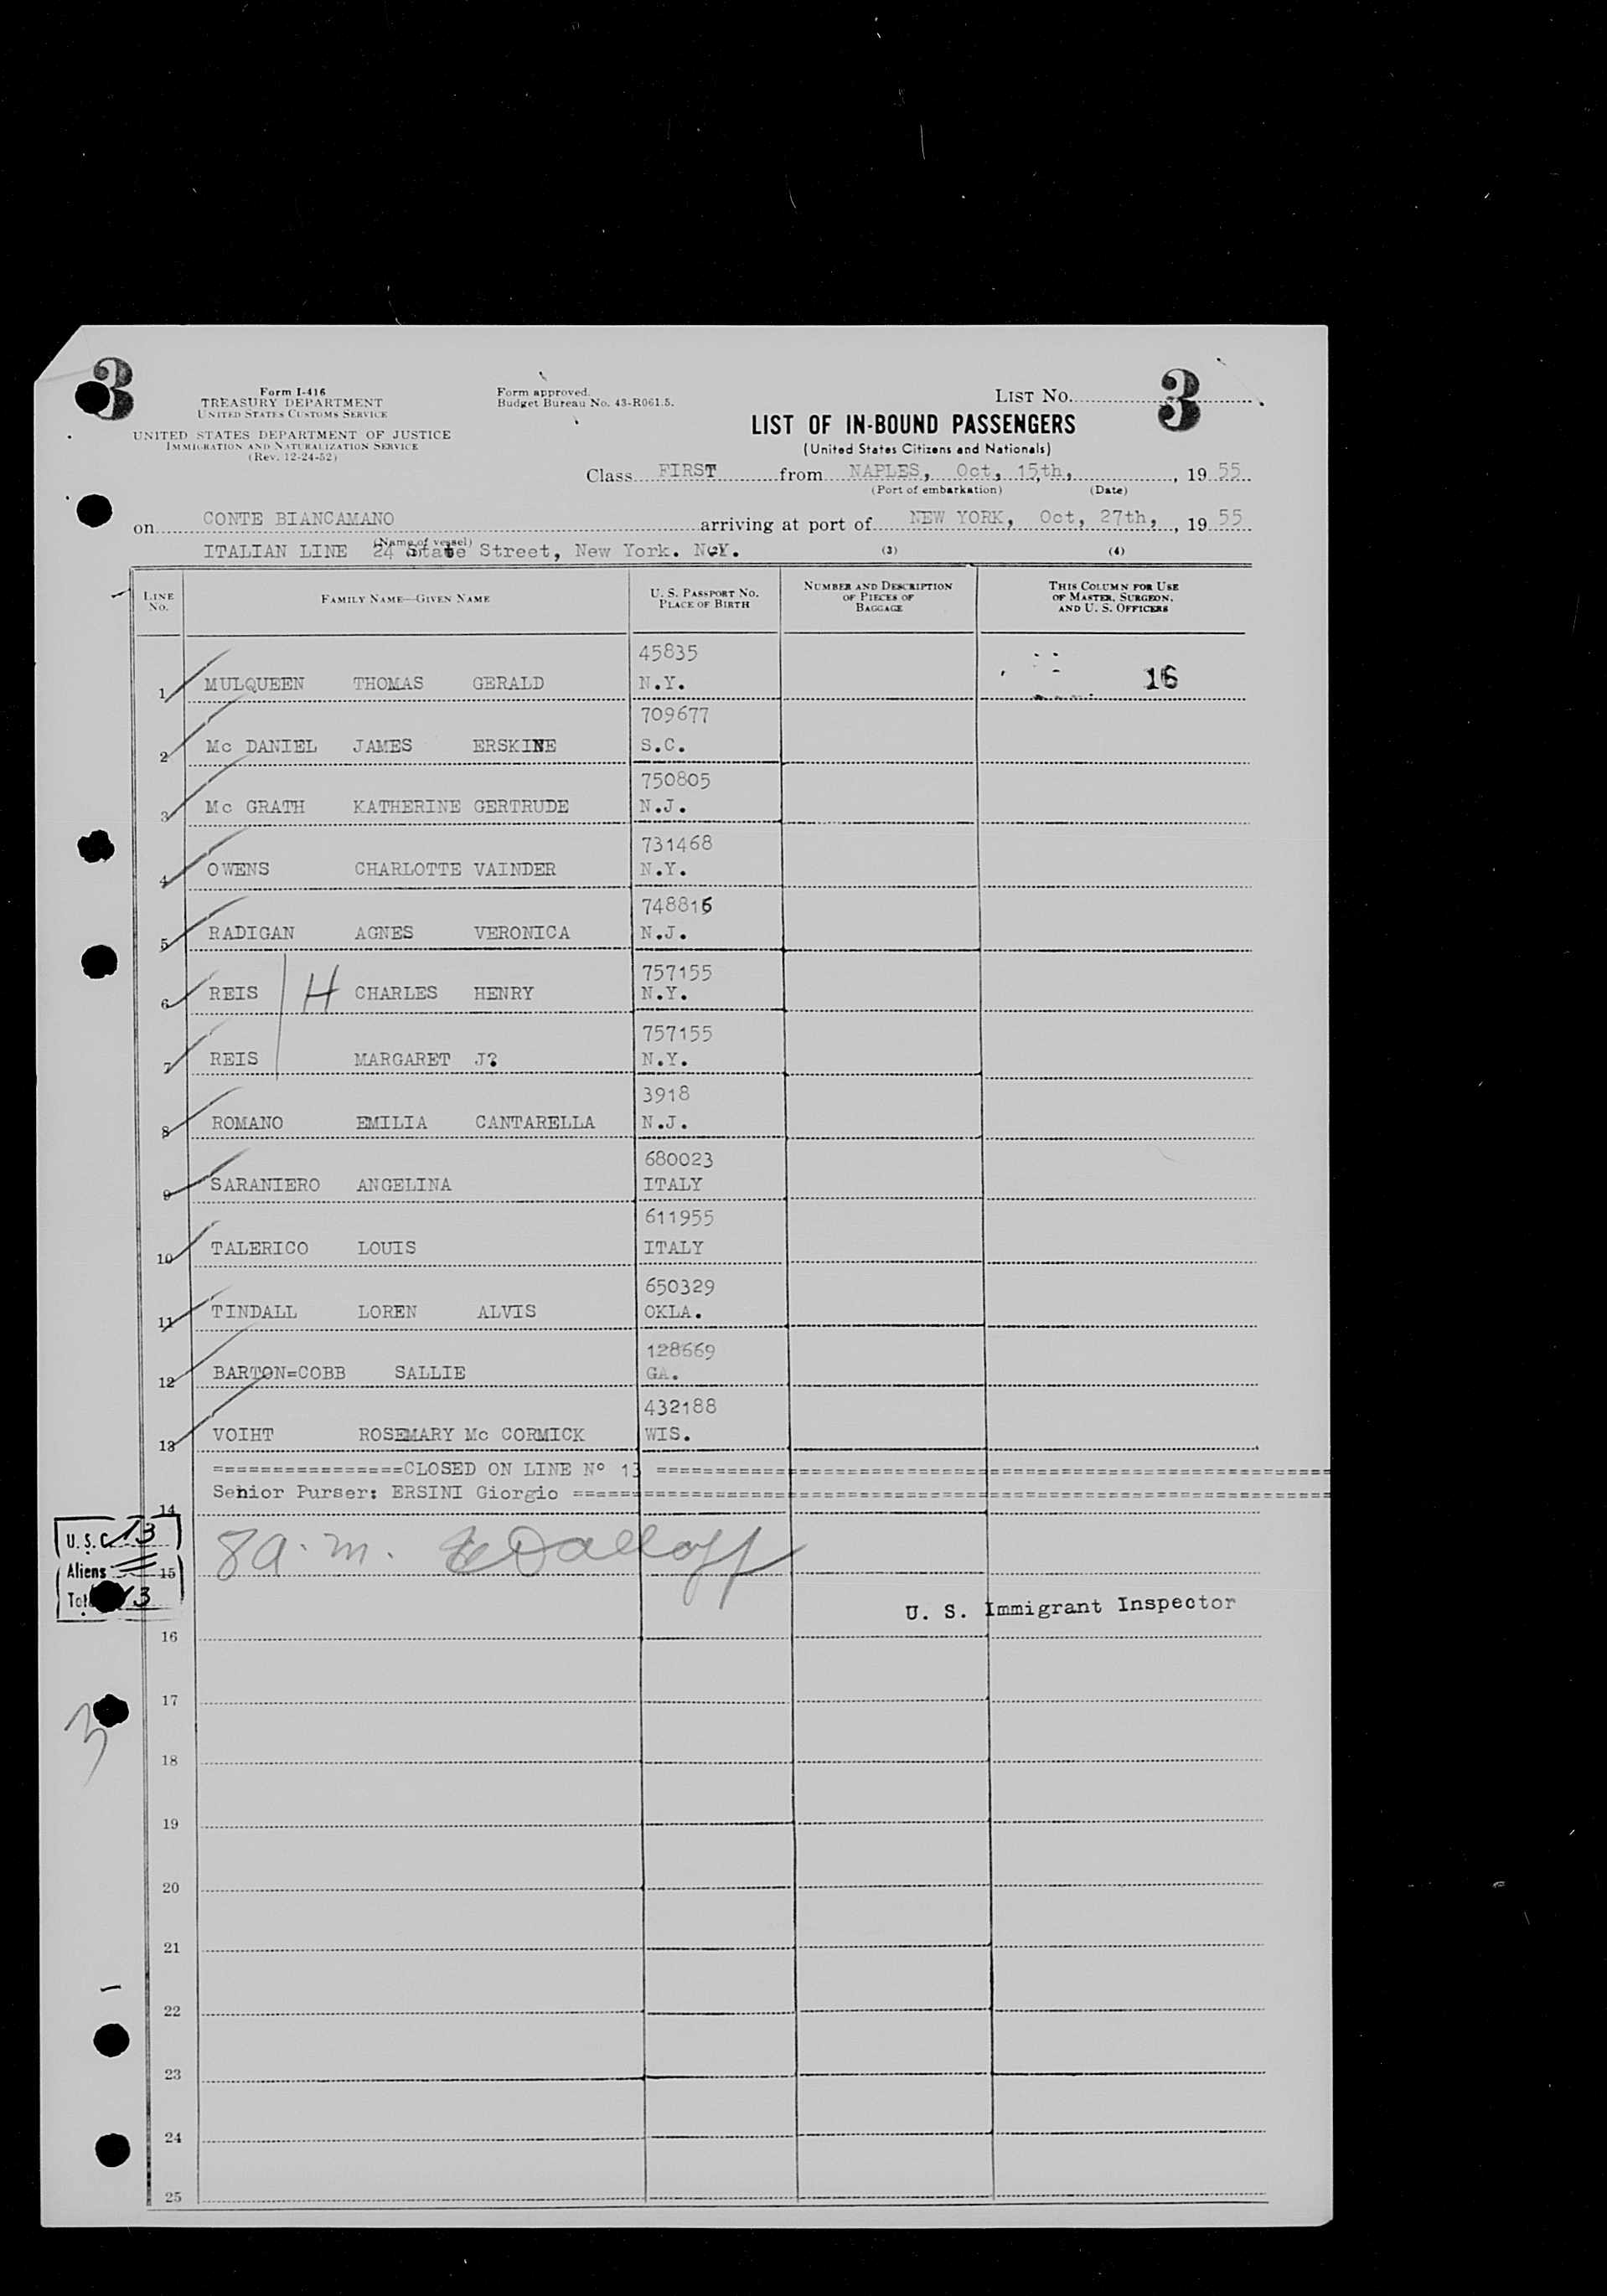 3
3
Form I-416
TREASURY DEPARTMENT
UNITED STATES CUSTOMS SERVICE
UNITED STATES DEPARTMENT OF JUSTICE
IMMIGRATION AND NATURALIZATION SERVICE
(Rev. 12-24-52)
Form approved.
Budget Bureau No. 43-R061.5.
LIST NO.
LIST OF IN-BOUND PASSENGERS
(United States Citizens and Nationals)
Class FIRST from NAPLES, Oct, 15,th, , 19 55
(Port of embarkation) (Date)
on CONTE BIANCAMANO arriving at port of NEW YORK, Oct, 27th, , 19 55
(Name of vessel)
ITALIAN LINE 24 State Street, New York. N.Y. (3) (4)
LINE NO. FAMILY NAME—GIVEN NAME U. S. PASSPORT NO. PLACE OF BIRTH NUMBER AND DESCRIPTION OF PIECES OF BAGGAGE THIS COLUMN FOR USE OF MASTER, SURGEON, AND U. S. OFFICERS
45835
1 MULQUEEN THOMAS GERALD N.Y. 16
709677
2 Mc DANIEL JAMES ERSKINE S.C.
750805
3 Mc GRATH KATHERINE GERTRUDE N.J.
731468
4 OWENS CHARLOTTE VAINDER N.Y.
748816
5 RADIGAN AGNES VERONICA N.J.
757155
6 REIS H CHARLES HENRY N.Y.
757155
7 REIS MARGARET J? N.Y.
3918
8 ROMANO EMILIA CANTARELLA N.J.
680023
9 SARANIERO ANGELINA ITALY
611955
10 TALERICO LOUIS ITALY
650329
11 TINDALL LOREN ALVIS OKLA.
128669
12 BARTON=COBB SALLIE GA.
432188
13 VOIHT ROSEMARY Mc CORMICK WIS.
================CLOSED ON LINE N° 13 ================
Senior Purser: ERSINI Giorgio ================
14
U. S. C. 13
8 a.m.
Aliens
15
Total 13
U. S. Immigrant Inspector
16
17
3
18
19
20
21
22
23
24
25